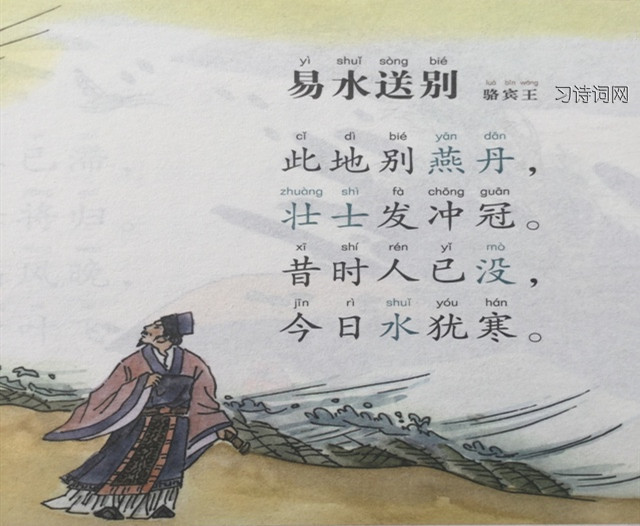 yì shuǐ sòng bié
易水送别
luò bīn wáng
骆宾王 习诗词网
cǐ dì bié yān dān
此地别燕丹，
zhuàng shì fà chōng guān
壮士发冲冠。
xī shí rén yǐ mò
昔时人已没，
jīn rì shuǐ yóu hán
今日水犹寒。